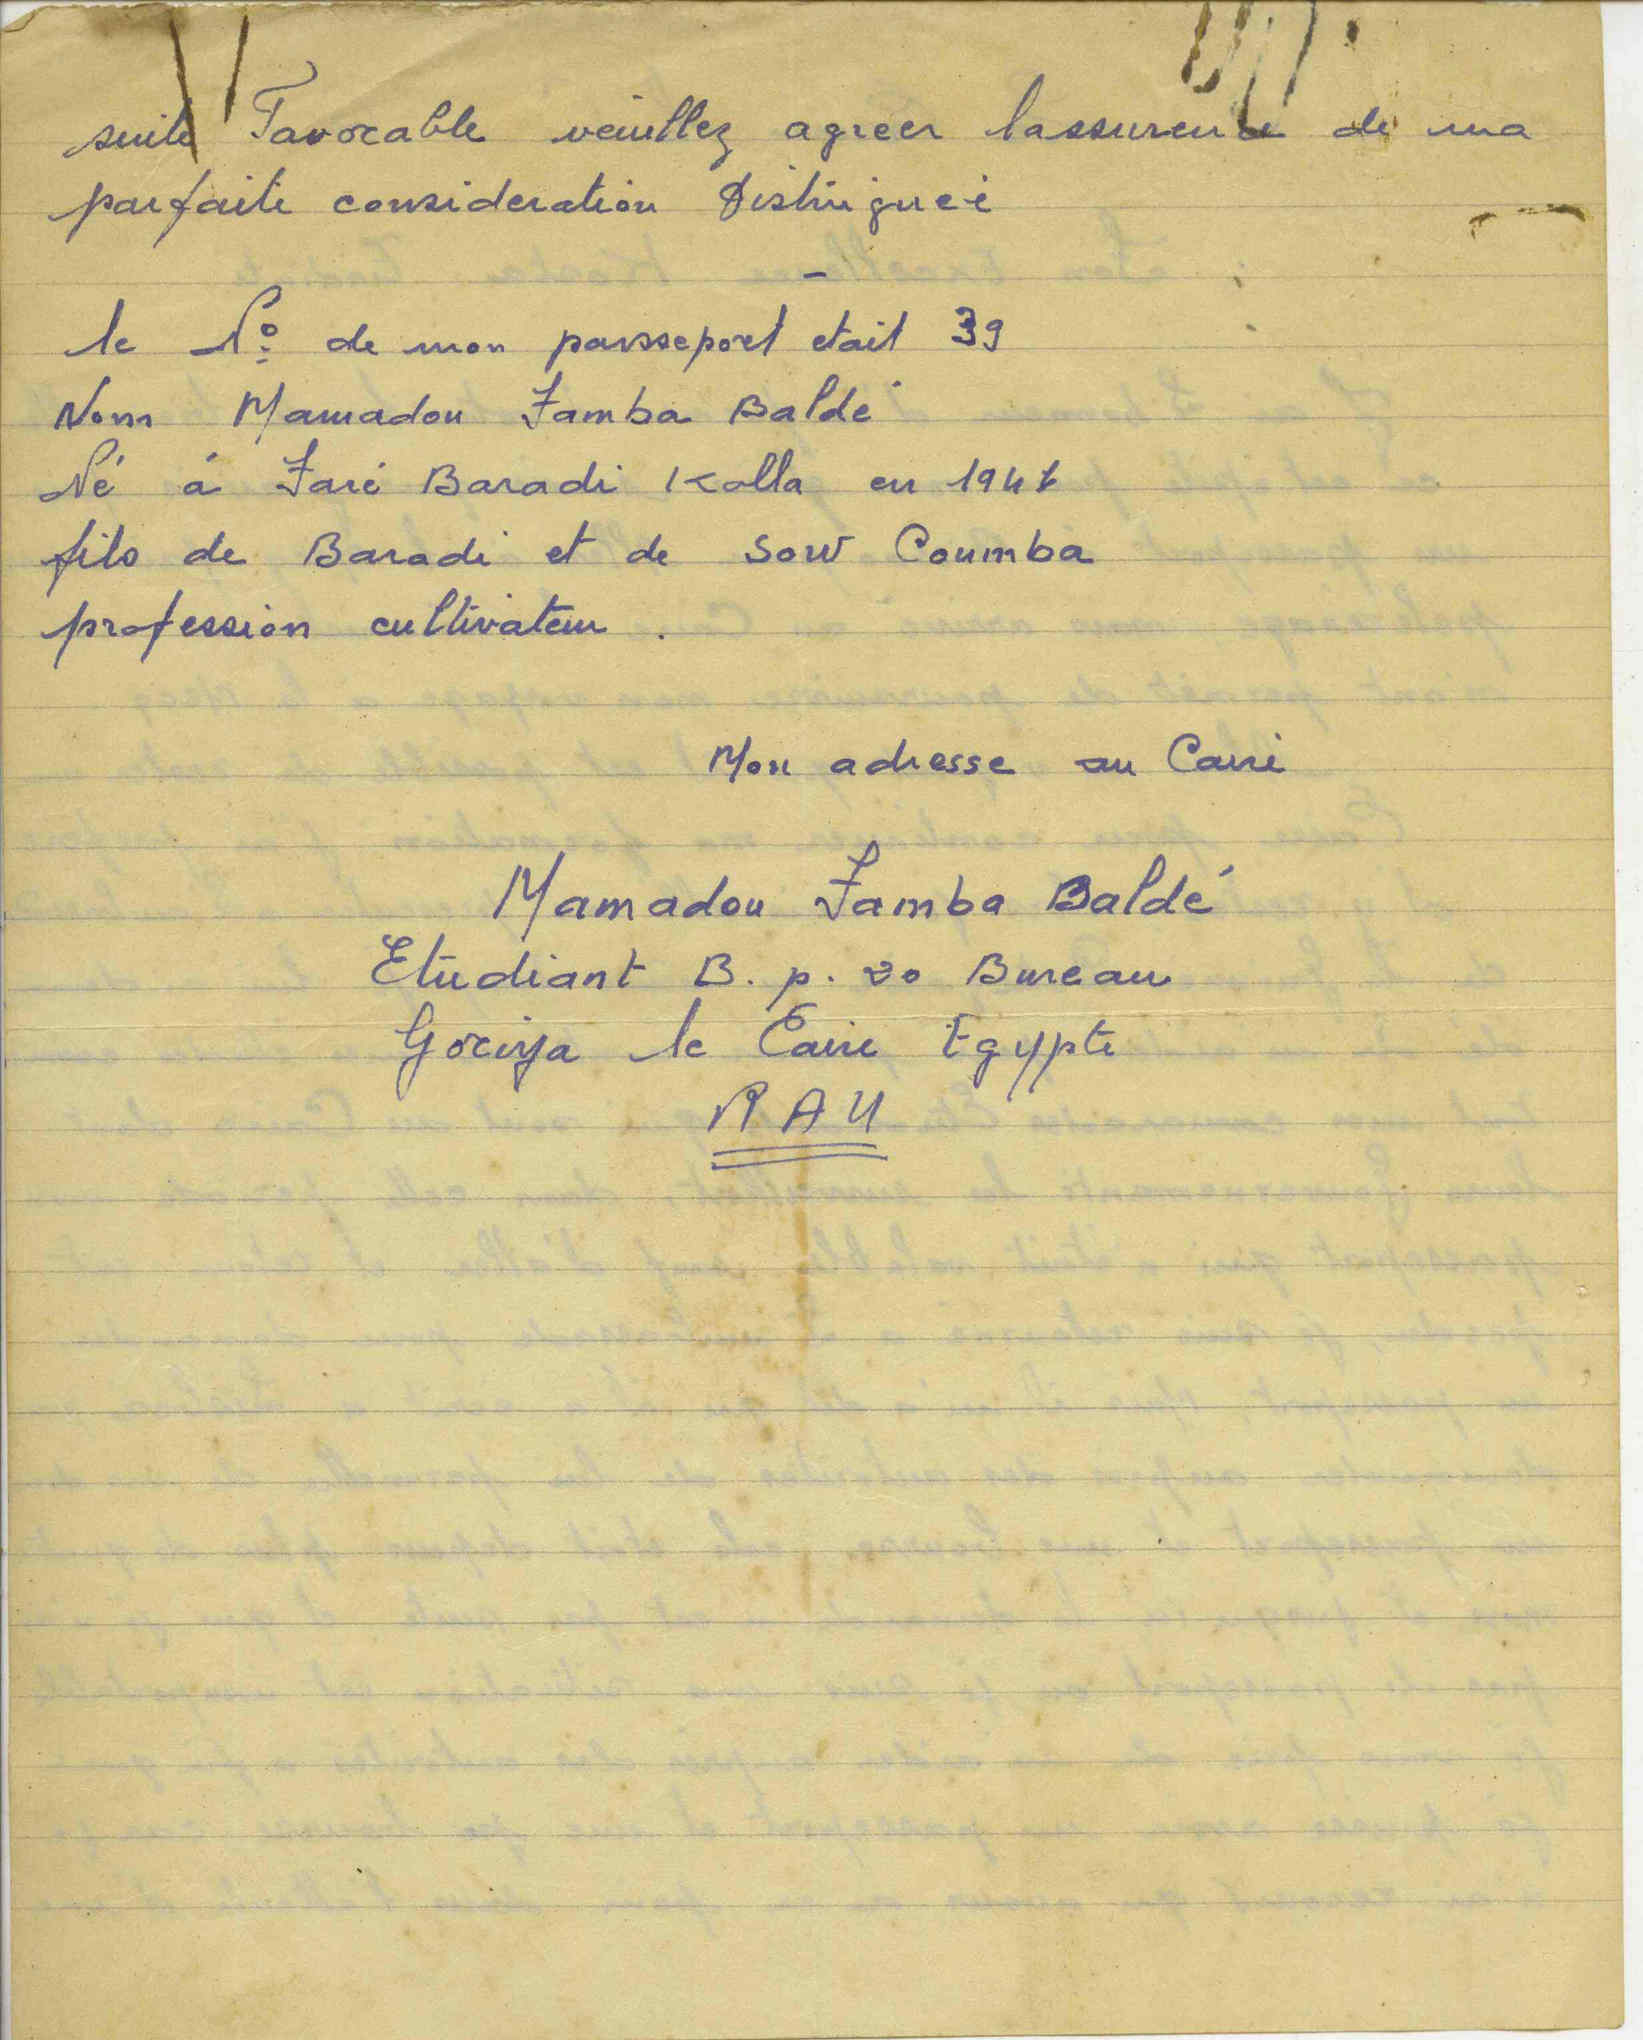 suite Favorable veuillez agreer lassurence de ma
parfaite consideration Distinguée
le Nº de mon passeport etait 39
Nom Mamadou Samba Baldé
Né á Saré Baradi Kolla en 194
fils de Baradi et de Sow Coumba
profession cultivateur .
Mon adresse au Caire
Mamadou Samba Baldé
Etudiant B. p. 20 Bureau
le Caire Egypte
RAU